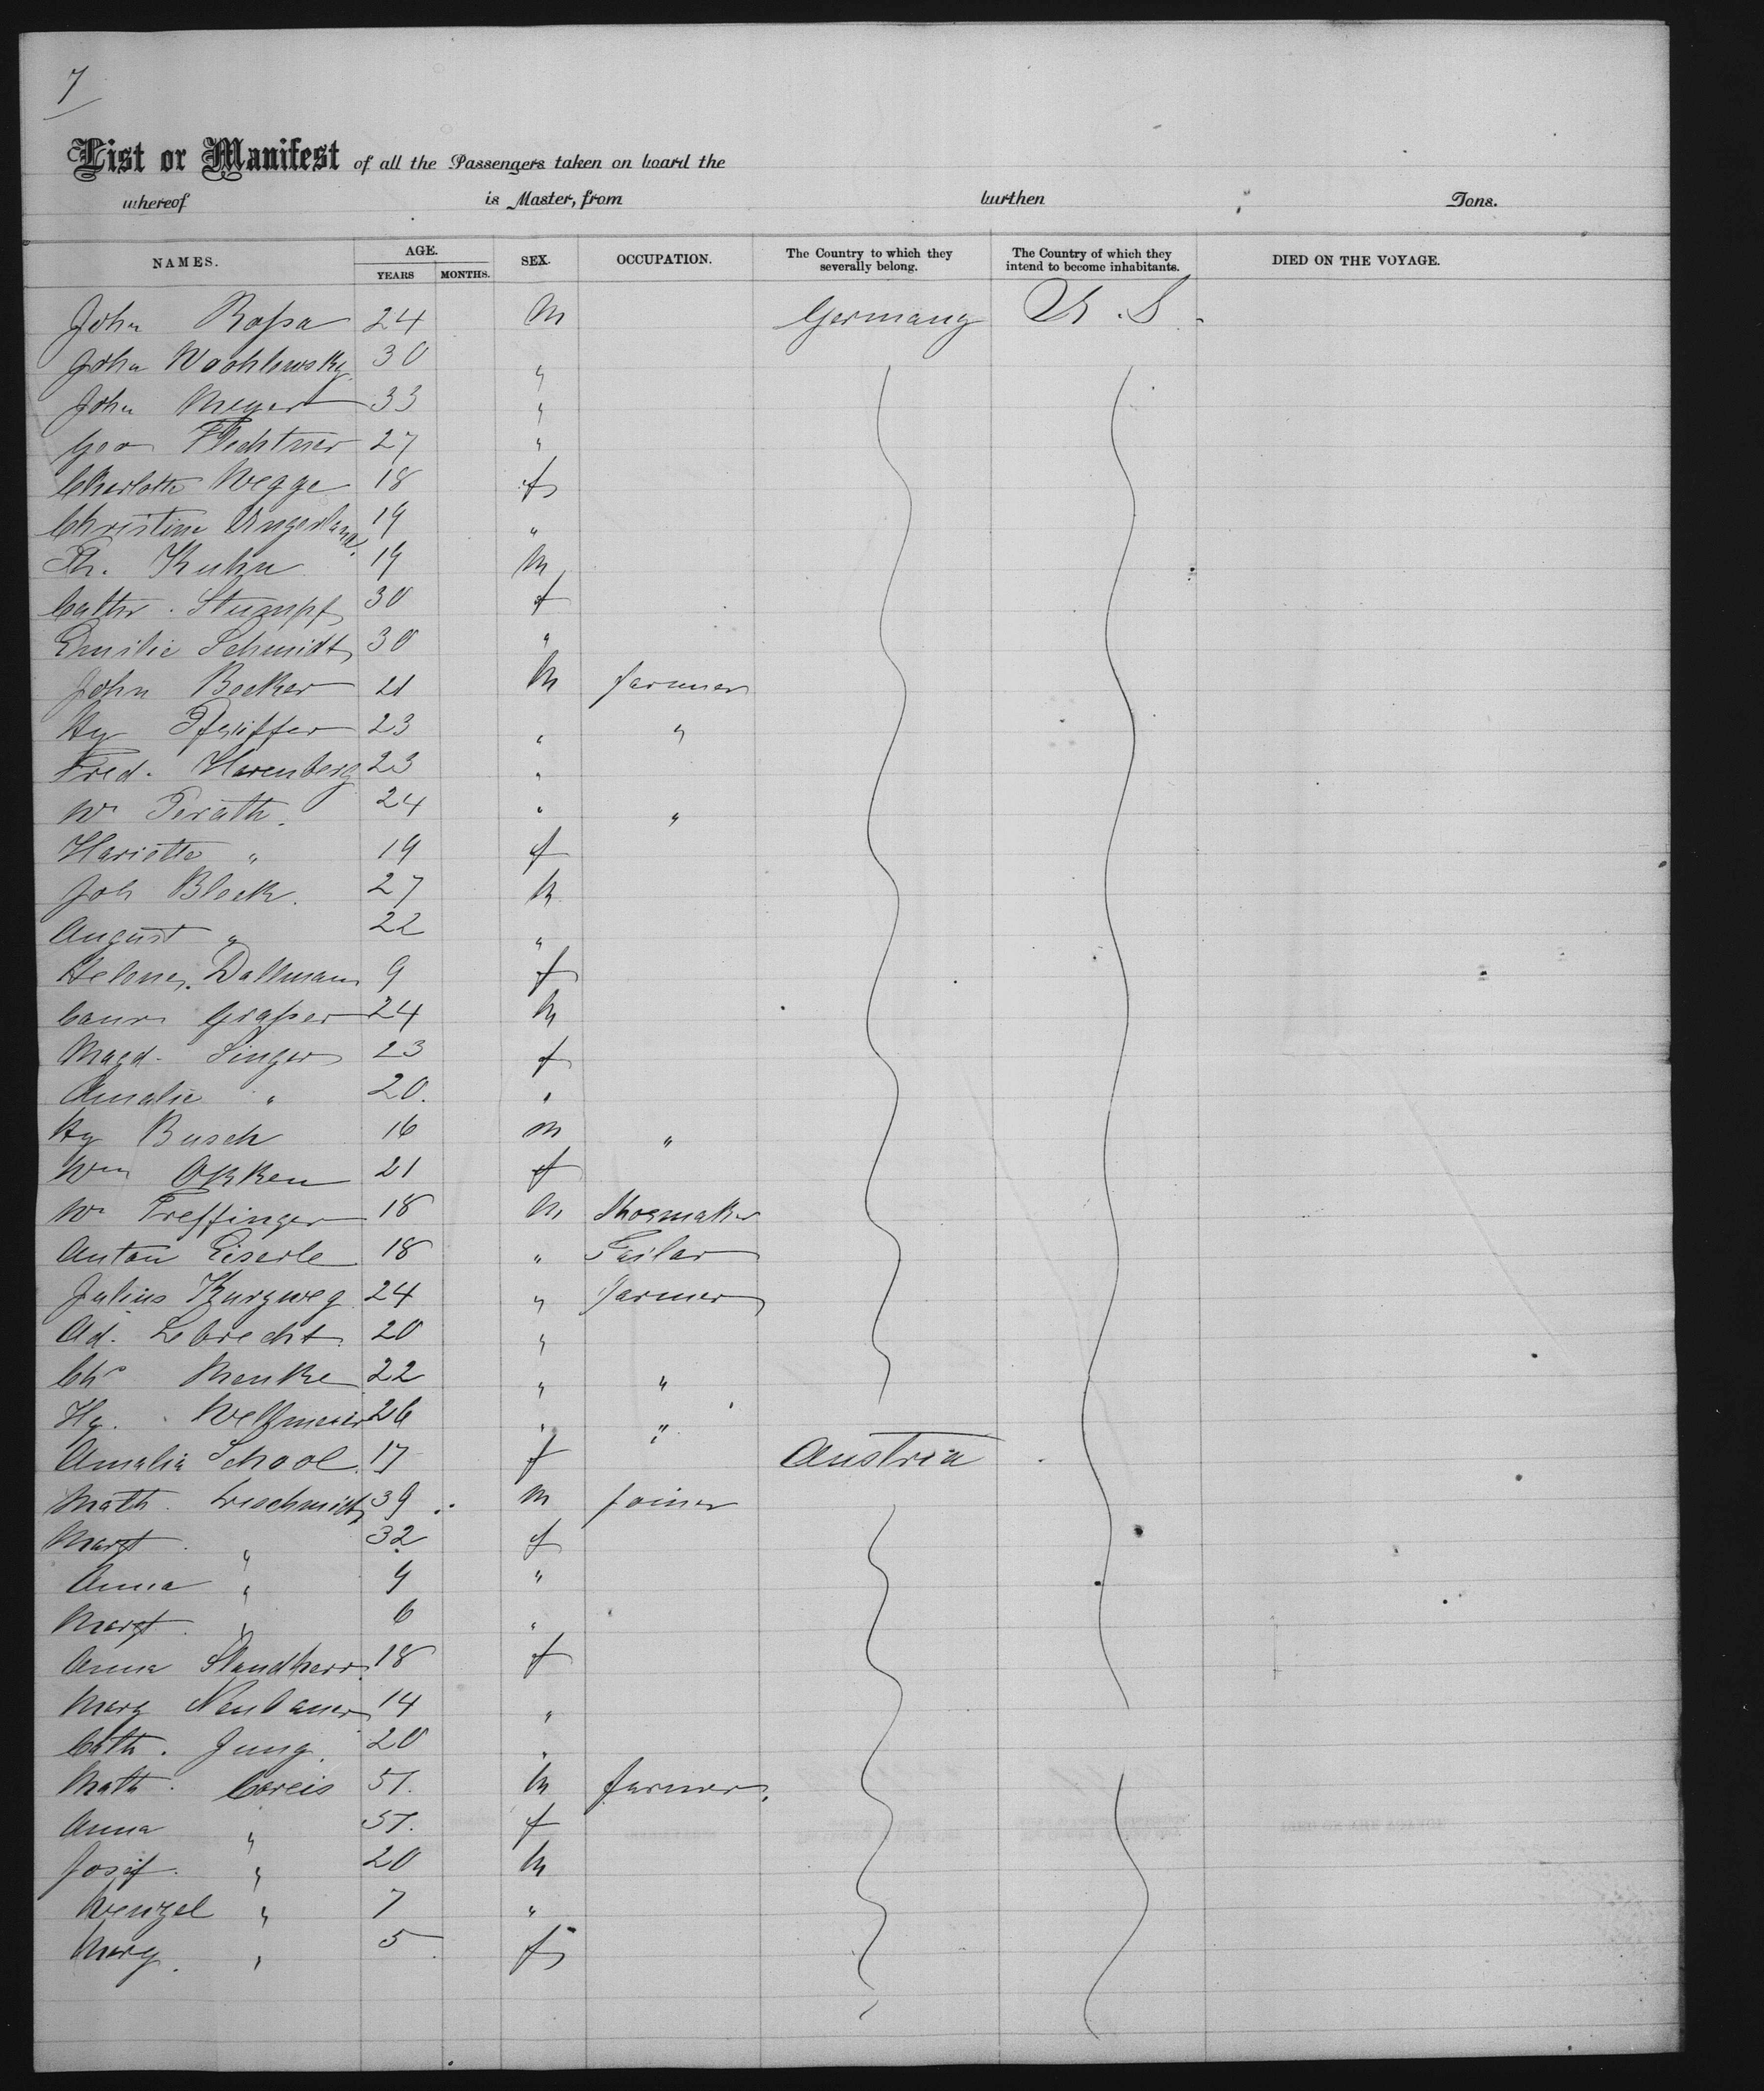 7
List or Manifest of all the Passengers taken on board the
whereof is Master, from burthen Tons.
NAMES. AGE. YEARS MONTHS. SEX. OCCUPATION. The Country to which they severally belong. The Country of which they intend to become inhabitants. DIED ON THE VOYAGE.
John Roßa 24 M Germany U.S.
John Wochlewsky 30 "
John Meyer 33 "
Geo Flechtner 27 "
Charlotte Wegge 18 f
Christine Ungerland 19 "
Th. Kuhn 19 M
Cathr. Stumpf 30 f
Emilie Schmidt 30 "
John Becker 21 M farmer
Hy Pfeiffer 23 " "
Fred. Harenberg 23 "
Wm Perath. 24 " "
Hariette " 19 f
Joh Block. 27 M
August " 22 "
Helene Dallmann 9 f
Graßer 24 M
Magd. Singer 23 f
Amalie " 20. "
Hy Busch 16 M "
Wm Okken 21 f
Wm Treffinger 18 M Shoemaker
Anton Eiserle 18 " Tailor
Julius Kurzweg 24 " Farmer
Ad. Lebrecht. 20 "
Chs Menke 22 " "
Hy. Welfmeier 26 " "
Amalia School. 17 f Austria
Math. 39 M joiner
Margt. " 32 f
Anna " 9 "
Margt. " 6 "
Anna Standherr. 18 f
Marg Neubauer 14 "
Cath. Jung. 20 "
Math. Coreis 51. M farmer.
Anna " 51. f
Josef. " 20 M
Wenzel " 7 "
Marg. " 5 f